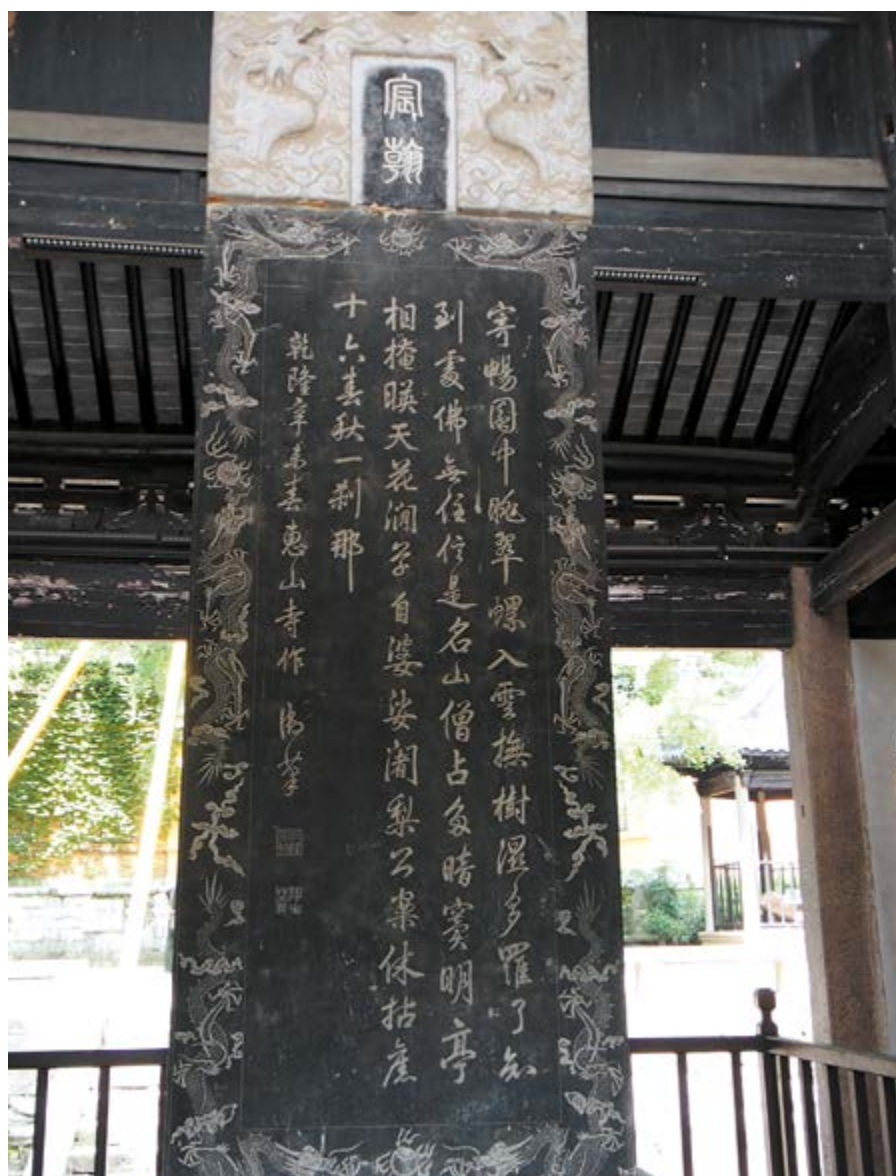 宸翰
寄暢園中眺翠螺入雲撫樹濕多羅了知
到處佛無住住是名山僧占多暗竇明亭
相掩暎天花澗草自婆娑闍梨公案休拈舊
十六春秋一刹那
乾隆辛未春惠山寺作御筆